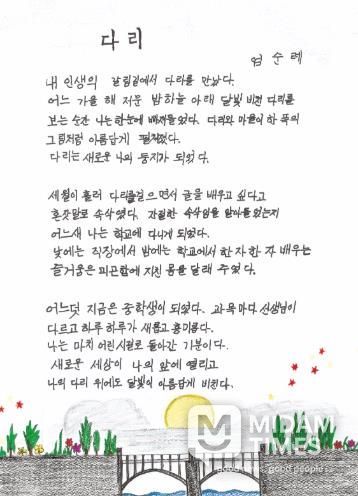 다리
엄순례
내 인생의 갈림길에서 다리를 만났다.
어느 가을 해 저문 밤하늘 아래 달빛 비친 다리를
보는 순간 나는 한눈에 빠져들었다. 다리와 마을이 한 폭의
그림처럼 아름답게 펼쳐졌다.
다리는 새로운 나의 둥지가 되었다.
세월이 흘러 다리를 걸으면서 글을 배우고 싶다고
혼잣말로 속삭였다. 간절한 속삭임을 알아들었는지
어느새 나는 학교에 다니게 되었다.
낮에는 직장에서 밤에는 학교에서 한 자 한 자 배우는
즐거움은 피곤함에 지친 몸을 달래 주었다.
어느덧 지금은 중학생이 되었다. 과목마다 선생님이
다르고 하루 하루가 새롭고 흥미롭다.
나는 마치 어린시절로 돌아간 기분이다.
새로운 세상이 나의 앞에 열리고
나의 다리 위에도 달빛이 아름답게 비친다.
MIDAM
TIMES
good times, good people